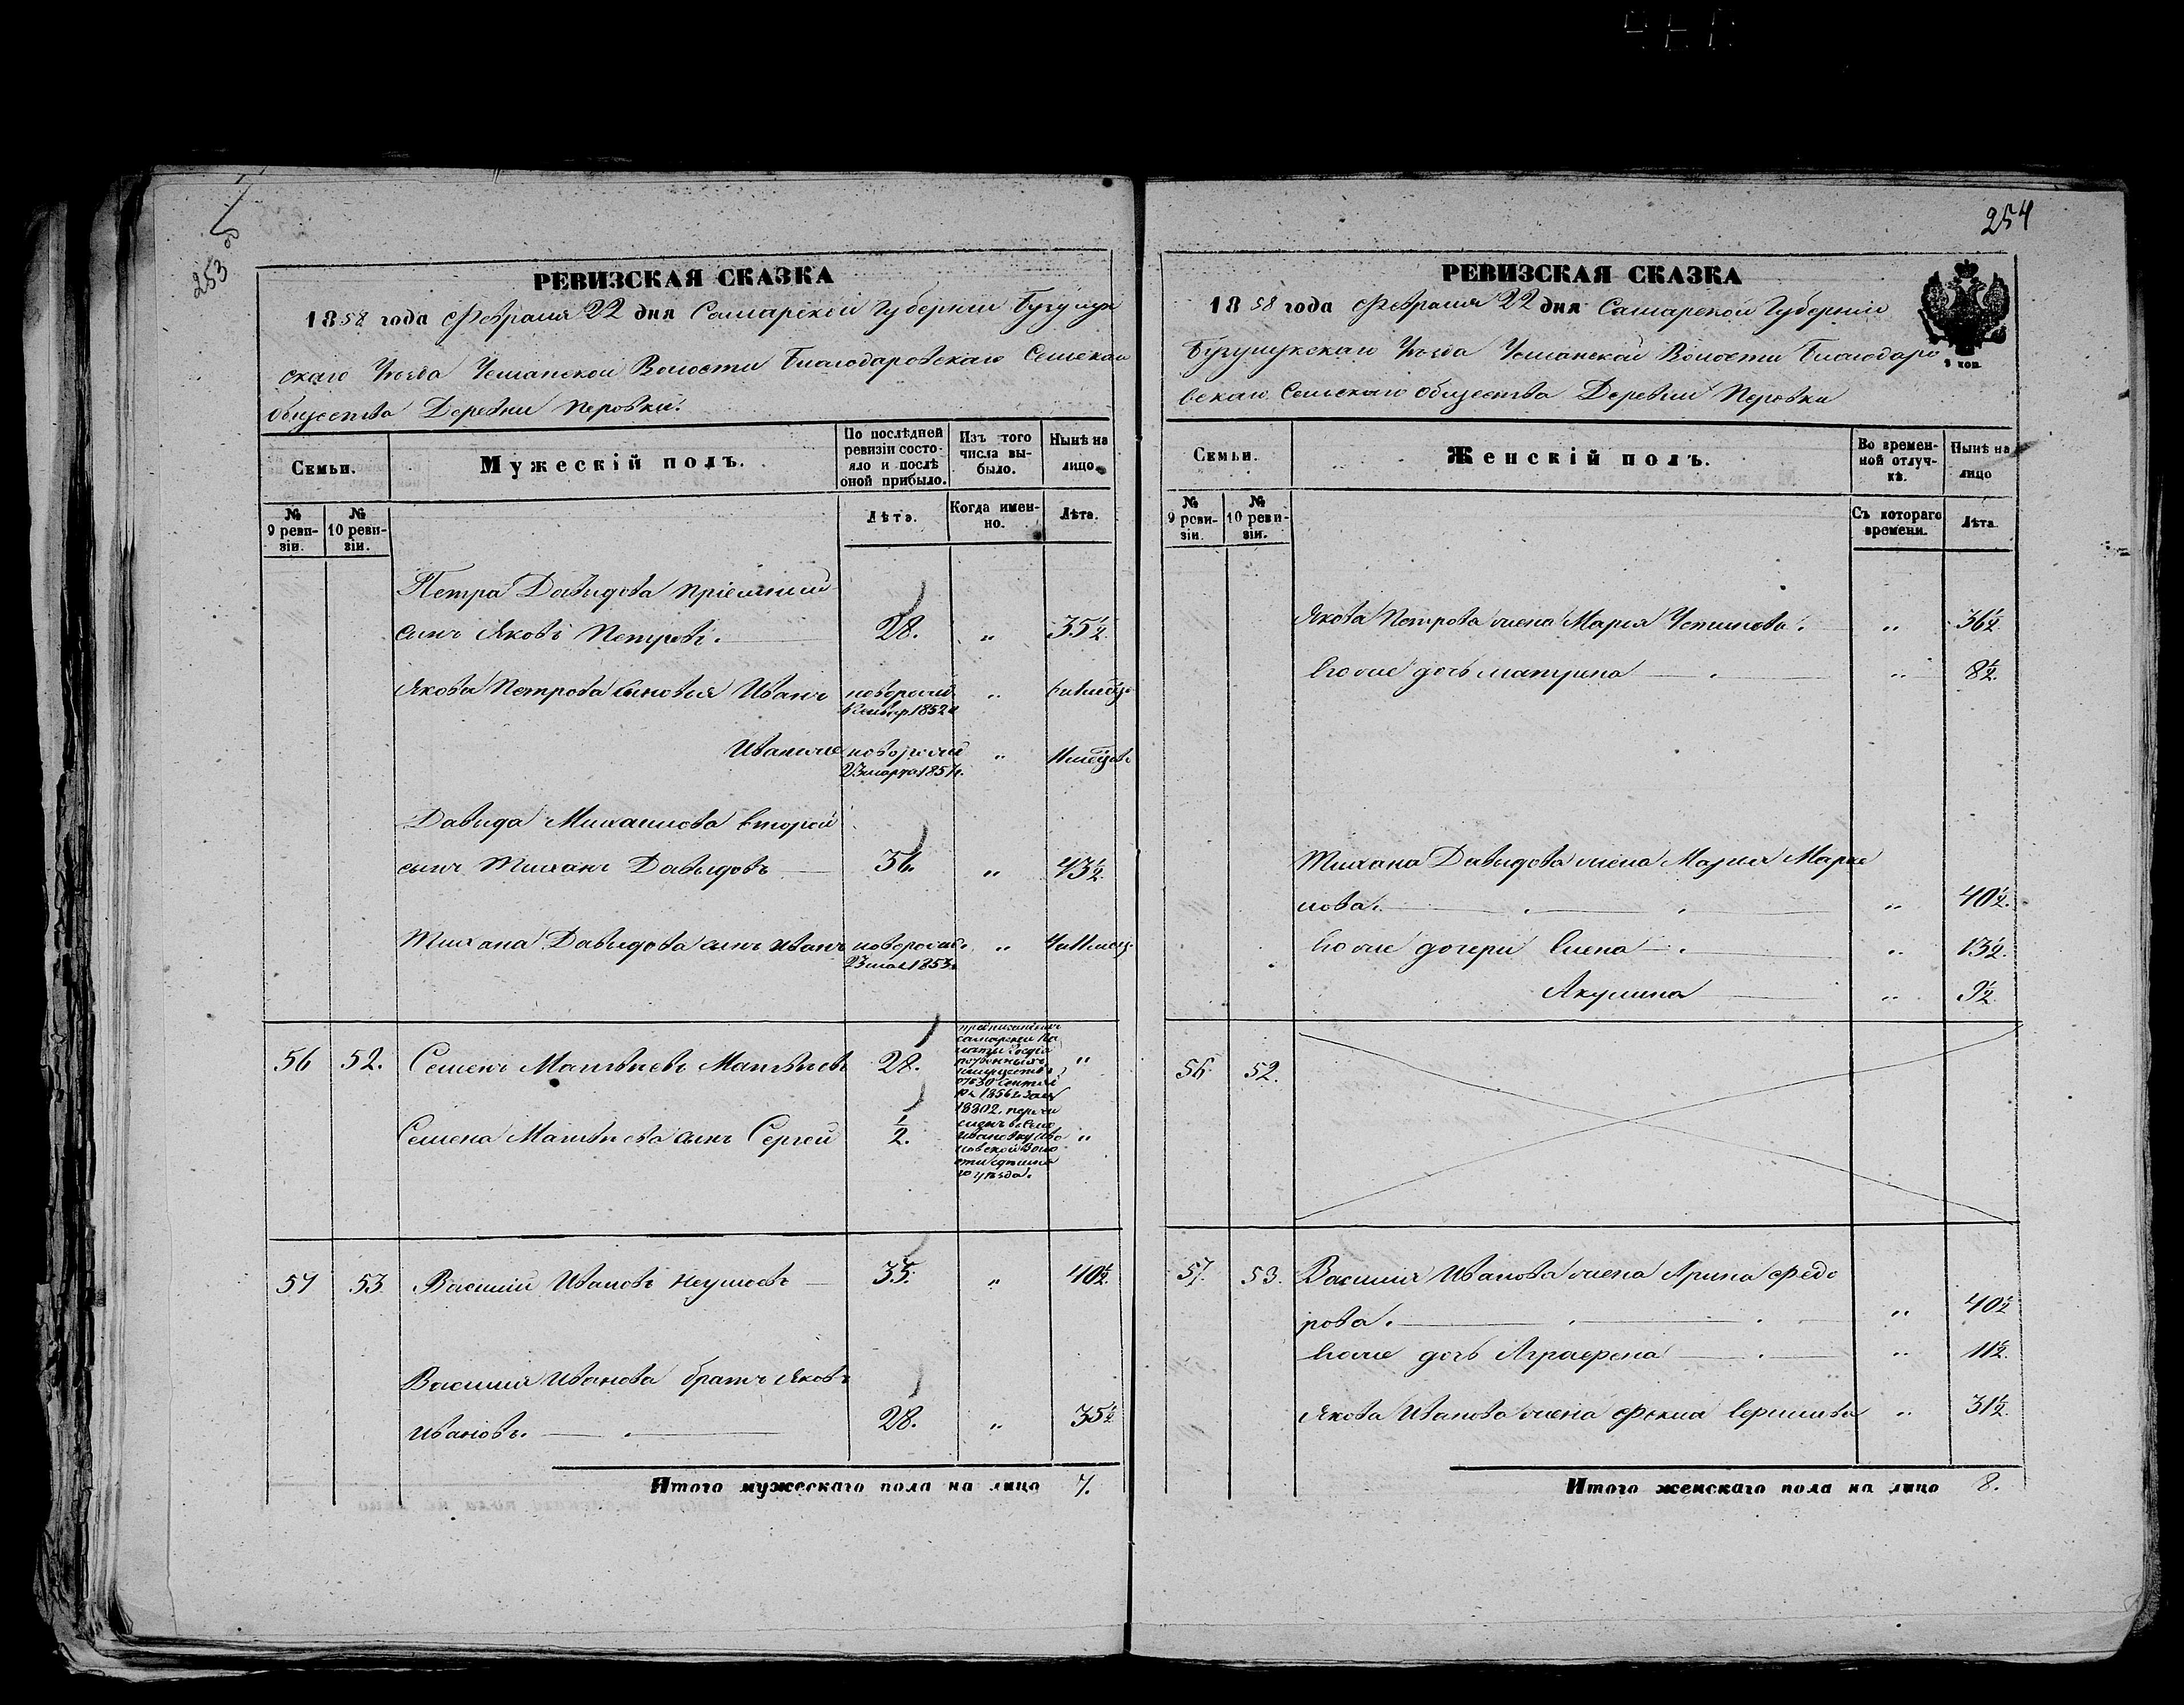 253
РЕВИЗСКАЯ СКАЗКА
1858 года Февраля 22 дня Самарской Губернiи Бугурус
скаго Уѣзда Волости Благодаровскаго Сельскаго
общества Деревни Перовки.
Семьи.
Мужескiй полъ.
По послѣдней ревизiи состояло и послѣ оной прибыло.
Изъ того числа выбыло.
Нынѣ на лицо
№ 9 ревизiи.
№ 10 ревизiи.
Лѣта.
Когда именно.
Лѣта.
Петра Давыдова прiемный
сынъ Яковъ Петровъ. 28. „ 35½
Якова Петрова сыновья Иванъ новорожд. „
1852
Иванже новорожд „
23 марта 1857.
Давыда Михайлова второй
сынъ Тиханъ Давыдовъ 36. „ 43½
Тихана Давыдова сынъ Иванъ новорожд. „
23 мая 1853.
56 52. Семенъ Матвѣевъ Матвѣевъ 28. „
Семена Матвѣева сынъ Сергей ½. „
57 53 Василий Ивановъ Неумоевъ 33. „ 40½
Василия Иванова братъ Яковъ
Ивановъ. 28. „ 35½
Итого мужескаго пола на лицо 7.
254
РЕВИЗСКАЯ СКАЗКА
1858 года Февраля 22 дня Самарской Губернiи
Уѣзда Волости Благодаро
вскаго Сельскаго общества Деревни Перовки
9 коп.
Семьи.
Женскiй полъ.
Во временной отлучкѣ.
Нынѣ на лицо
№ 9 ревизiи.
№ 10 ревизiи.
Съ котораго времени.
Лѣта.
Якова Петрова жена Марья Устинова. „ 36½
Егоже дочь Матрена „ 8½.
Тихана Давыдова жена Марья Марке
лова. „ 40½.
Егоже дочери Елена „ 13½.
Акулина „ 9½
56. 52.
57. 53. Василия Иванова жена Арина Федо
рова. „ 40½
Егоже дочь Аграфена „ 11½.
Якова Иванова жена Фекла „ 31½.
Итого женскаго пола на лицо 8.